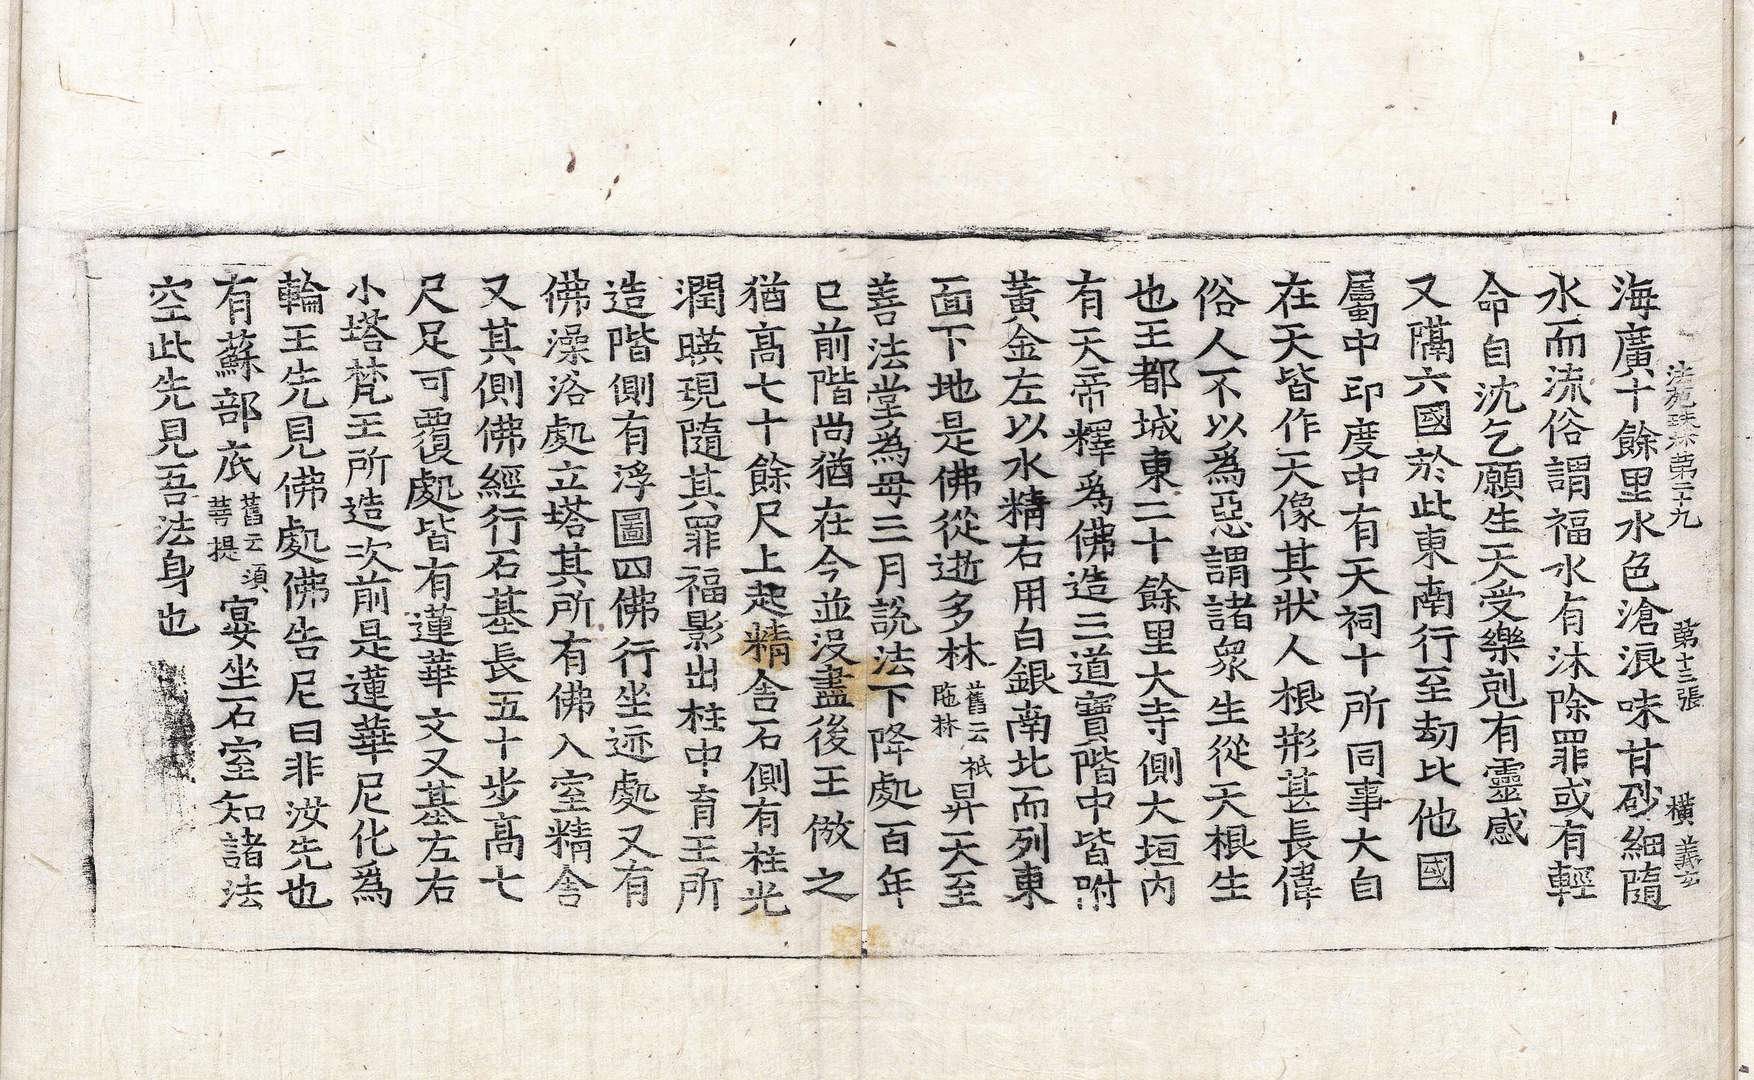 法苑珠林第二十九 第十三張 橫 義玄
海廣十餘里水色滄浪味甘砂細隨
水而流俗謂福水有沐除罪或有輕
命自沈乞願生天受樂剋有靈感
又隔六國於此東南行至劫比他國
屬中印度中有天祠十所同事大自
在天皆作天像其狀人根形甚長偉
俗人不以爲惡謂諸衆生從天根生
也王都城東二十餘里大寺側大垣內
有天帝釋爲佛造三道寶階中皆咐
黃金左以水精右用白銀南北而列東
面下地是佛從逝多林舊云祇陁林昇天至
善法堂爲母三月說法下降處百年
已前階尚猶在今並沒盡後王倣之
猶高七十餘尺上起精舍石側有柱光
潤暎現隨其罪福影出柱中育王所
造階側有浮圖四佛行坐迹處又有
佛澡浴處立塔其所有佛入室精舍
又其側佛經行石基長五十步高七
尺足可覆處皆有蓮華文又基左右
小塔梵王所造次前是蓮華尼化爲
輪王先見佛處佛告尼曰非汝先也
有蘇部底舊云須菩提宴坐石室知諸法
空此先見吾法身也